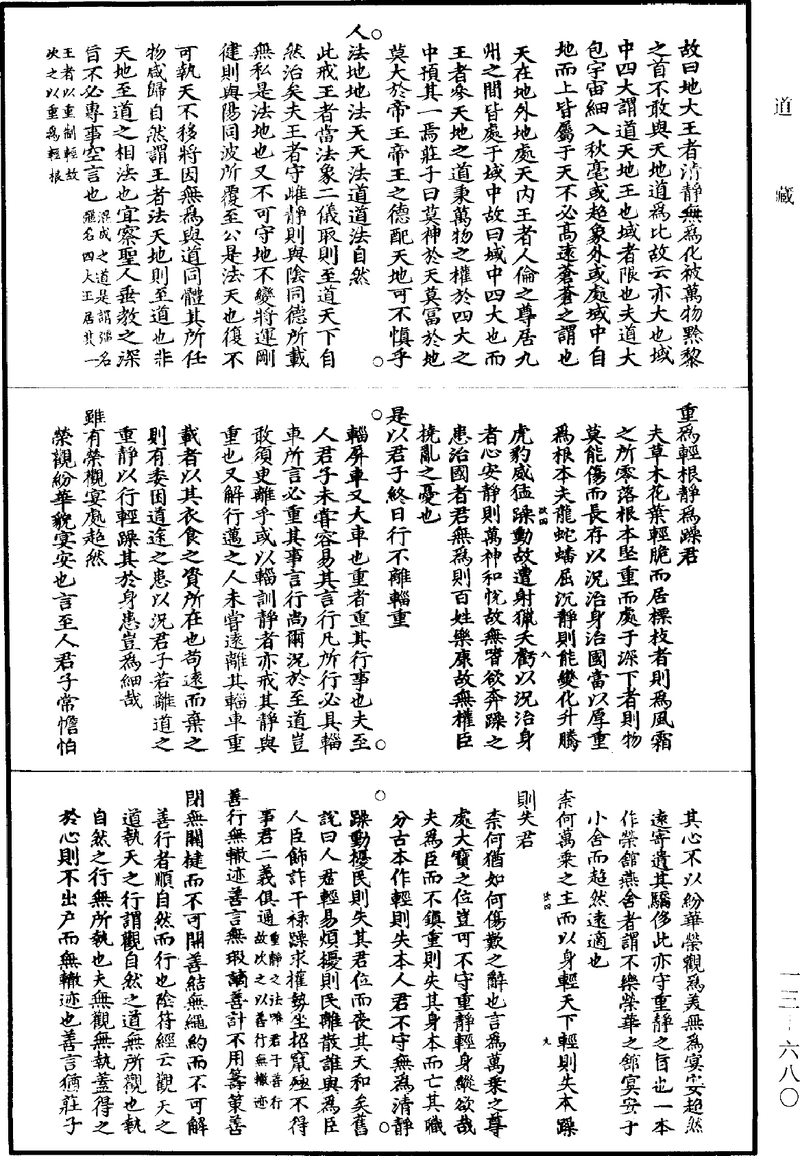 道藏
故曰地大王者清靜無為化被萬物黔黎
之首不敢與天地道為比故云亦大也域
中四大謂道天地王也域者限也夫道大
包宇宙細入秋毫或超象外或處域中自
地而上皆屬于天不必高遠蒼蒼之謂也
天在地外地處天內王者人倫之尊居九
州之間皆處于域中故曰域中四大也而
王者參天地之道秉萬物之權於四大之
中預其一焉莊子曰莫神於天莫富於地
莫大於帝王帝王之德配天地可不慎乎
人法地地法天天法道道法自然
此戒王者當法象二儀取則至道天下自
然治矣夫王者守雌靜則與陰同德所載
無私是法地也又不可守地不變將運剛
健則與陽同波所覆至公是法天也復不
可執天不移將因無為與道同體其所任
物咸歸自然謂王者法天地則至道也非
天地至道之相法也宜察聖人垂教之深
旨不必專事空言也混成之道是謂強名
強名四大王居其一
王者以重制輕故
次之以重為輕根
重為輕根靜為躁君
夫草木花葉輕脆而居標枝者則為風霜
之所零落根本堅重而處于深下者則物
莫能傷而長存以況治身治國當以厚重
為根本夫龍蛇蟠屈沉靜則能變化升騰
虎豹威猛躁動故遭射獵夭虧以況治身
者心安靜則萬神和悅故無嗜欲奔躁之
患治國者君無為則百姓樂康故無權臣
撓亂之憂也
是以君子終日行不離輜重
輜屏車又大車也重者重其行事也夫至
人君子未嘗容易其言行凡所行必具輜
車所言必重其事言行尚爾況於至道豈
敢須臾離乎或以輜訓靜者亦戒其靜與
重也又解行邁之人未嘗遠離其輜車重
載者以其衣食之資所在也苟遠而棄之
則有委困道途之患以況君子若離道之
重靜以行輕躁其於身患豈為細哉
雖有榮觀宴處超然
榮觀紛華貌宴安也言至人君子常憺怕
其心不以紛華榮觀為美無為寞安超然
遠寄遺其驕侈此亦守重靜之旨也一本
作榮館燕舍者謂不樂榮華之館寞安于
小舍而超然遠適也
柰何萬乘之主而以身輕天下輕則失本躁
則失君
柰何猶如何傷歎之辭也言為萬乘之尊
處大寶之位豈可不守重靜輕身縱欲哉
夫為臣而不鎮重則失其身本而亡其職
分古本作輕則失本人君不守無為清靜
躁動擾民則失其君位而喪其天和矣舊
說曰人君輕易煩擾則民離散誰與為臣
人臣飾詐干祿躁求權勢坐招竄殛不得
事君二義俱通重靜之法唯君子善行
故次之以善行無轍迹
善行無轍迹善言無瑕讁善計不用籌策善
閉無關揵而不可開善結無繩約而不可解
善行者順自然而行也陰符經云觀天之
道執天之行謂觀自然之道無所觀也執
自然之行無所執也夫無觀無執蓋得之
於心則不出戶而無轍迹也善言猶莊子
一三-六八〇